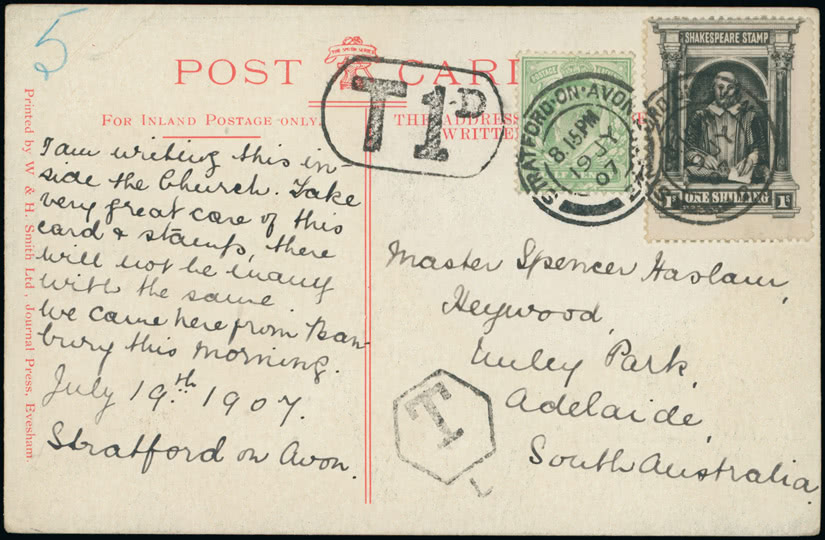 5
THE UNION SERIES
POST CARD
FOR INLAND POSTAGE ONLY.
THE ADDRESS
WRITTEN
T 1D
POSTAGE
STRATFORD·ON·AVON
8.15PM
19 JY
07
SHAKESPEARE STAMP
1s ONE SHILLING 1s
Printed by W. & H. Smith Ltd., Journal Press, Evesham.
I am writing this in-
side the Church. Take
very great care of this
card & stamps, there
will not be many
with the same.
We came here from Ban-
bury this morning.
July 19th 1907.
Stratford on Avon.
Master Spencer Haslam,
Heywood,
Unley Park,
Adelaide,
South Australia.
T
L